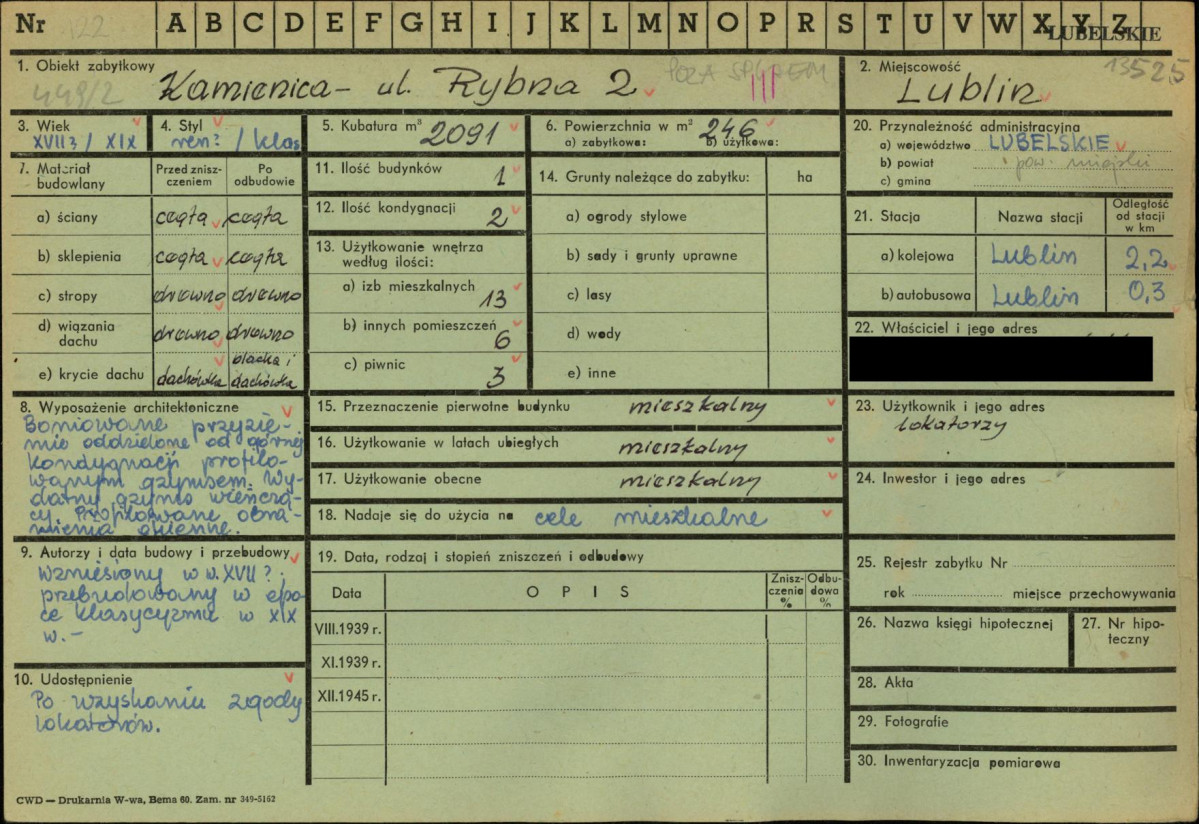 Nr 122 A B C D E F G H I J K L M N O P R S T U V W X Y Z LUBELSKIE
1. Obiekt zabytkowy
449/2 Kamienica - ul. Rybna 2 POZA SPISEM
2. Miejscowość 13525
Lublin
3. Wiek
XVII? / XIX
4. Styl
ren? / klas
5. Kubatura m³ 2091
6. Powierzchnia w m² 246
a) zabytkowa: b) użytkowa:
20. Przynależność administracyjna
a) województwo LUBELSKIE
b) powiat pow. miejski
c) gmina
7. Materiał budowlany
Przed zniszczeniem
Po odbudowie
a) ściany cegła cegła
b) sklepienia cegła cegła
c) stropy drewno drewno
d) wiązania dachu drewno drewno
e) krycie dachu dachówka blacha i dachówka
11. Ilość budynków 1
12. Ilość kondygnacji 2
13. Użytkowanie wnętrza
według ilości:
a) izb mieszkalnych 13
b) innych pomieszczeń 6
c) piwnic 3
14. Grunty należące do zabytku: ha
a) ogrody stylowe
b) sady i grunty uprawne
c) lasy
d) wody
e) inne
21. Stacja Nazwa stacji Odległość od stacji w km
a) kolejowa Lublin 2,2
b) autobusowa Lublin 0,3
22. Właściciel i jego adres
8. Wyposażenie architektoniczne
Boniowane przyzie-
mie oddzielone od górnej
kondygnacji profilo-
wanym gzymsem. Wy-
datny gzyms wieńczą-
cy. Profilowane obra-
mienia okienne.
15. Przeznaczenie pierwotne budynku mieszkalny
16. Użytkowanie w latach ubiegłych mieszkalny
17. Użytkowanie obecne mieszkalny
18. Nadaje się do użycia na cele mieszkalne
23. Użytkownik i jego adres
lokatorzy
24. Inwestor i jego adres
9. Autorzy i data budowy i przebudowy
Wzniesiony w w. XVII?,
przebudowany w epo-
ce klasycyzmu w XIX
w. -
10. Udostępnienie
Po uzyskaniu zgody
lokatorów.
19. Data, rodzaj i stopień zniszczeń i odbudowy
Data O P I S Znisz-czenia % Odbu-dowa %
VIII.1939 r.
XI.1939 r.
XII.1945 r.
25. Rejestr zabytku Nr
rok miejsce przechowywania
26. Nazwa księgi hipotecznej
27. Nr hipo-teczny
28. Akta
29. Fotografie
30. Inwentaryzacja pomiarowa
CWD — Drukarnia W-wa, Bema 60. Zam. nr 349-5162